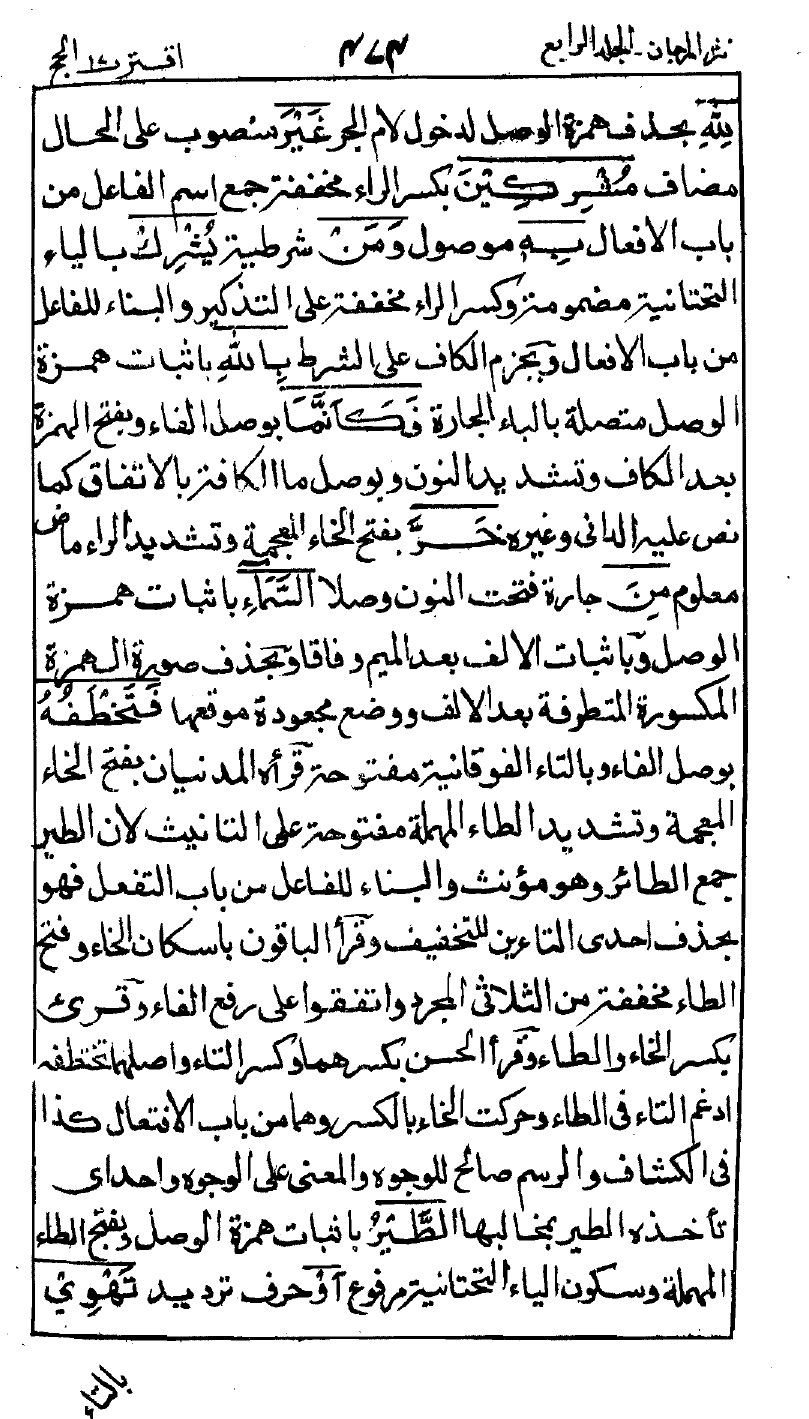 نثر المرجان - المجلد الرابع ٤٧٣ اقترب ١٧ الحج
لِلّٰهِ بحذف همزة الوصل لدخول لام الجر غَيْرَ منصوب على الحال
مضاف مُشْرِكِيْنَ بكسر الراء مخففة جمع اسم الفاعل من
باب الافعال بِهٖ موصول وَمَنْ شرطية يُشْرِكْ بالياء
التحتانية مضمومة وكسر الراء مخففة على التذكير والبناء للفاعل
من باب الافعال وبجزم الكاف على الشرط بِاللّٰهِ باثبات همزة
الوصل متصلة بالباء الجارة فَكَاَنَّمَا بوصل الفاء وبفتح الهمزة
بعد الكاف وتشديد النون وبوصل ما الكافة بالاتفاق كما
نص عليه الدانى وغيره خَرَّ بفتح الخاء المعجمة وتشديد الراء ماض
معلوم مِنَ جارة فتحت النون وصلا السَّمَاءِ باثبات همزة
الوصل وباثبات الالف بعد الميم وفاقا وبحذف صورة الهمزة
المكسورة المتطرفة بعد الالف ووضع مجعودة موقعها فَتَخْطَفُهُ
بوصل الفاء وبالتاء الفوقانية مفتوحة قرأه المدنيان بفتح الخاء
المعجمة وتشديد الطاء المهملة مفتوحة على التانيث لان الطير
جمع الطائر وهو مؤنث والبناء للفاعل من باب التفعل فهو
بحذف احدى التاءين للتخفيف وقرأ الباقون باسكان الخاء وفتح
الطاء مخففة من الثلاثى المجرد واتفقوا على رفع الفاء وقرئ
بكسر الخاء والطاء وقرأ الحسن بكسرهما وكسر التاء واصلهما تختطفه
ادغم التاء فى الطاء وحركت الخاء بالكسر وهما من باب الافتعال كذا
فى الكشاف والرسم صالح للوجوه والمعنى على الوجوه واحد اى
تأخذه الطير بمخالبها الطَّيْرُ باثبات همزة الوصل وبفتح الطاء
المهملة وسكون الياء التحتانية مرفوع اَوْ حرف ترديد تَهْوِيْ
بالتاء